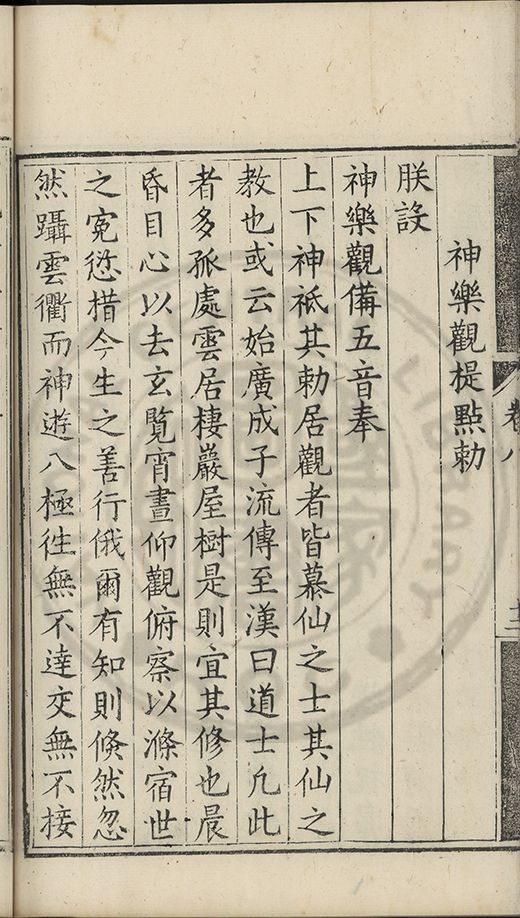 卷八
十三
神樂觀提點勅
朕設
神樂觀備五音奉
上下神祗其勅居觀者皆慕仙之士其仙之
教也或云始廣成子流傳至漢曰道士凡此
者多孤處雲居棲巖屋樹是則宜其修也晨
昏目心以去玄覽宵晝仰觀俯察以滌宿世
之冤愆措今生之善行俄爾有知則倏然忽
然躡雲衢而神遊八極徃無不達交無不接